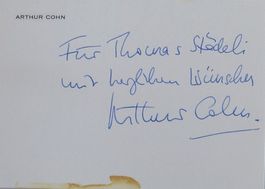 ARTHUR COHN
Für Thomas Städeli
mit herzlichen Wünschen
Arthur Cohn.